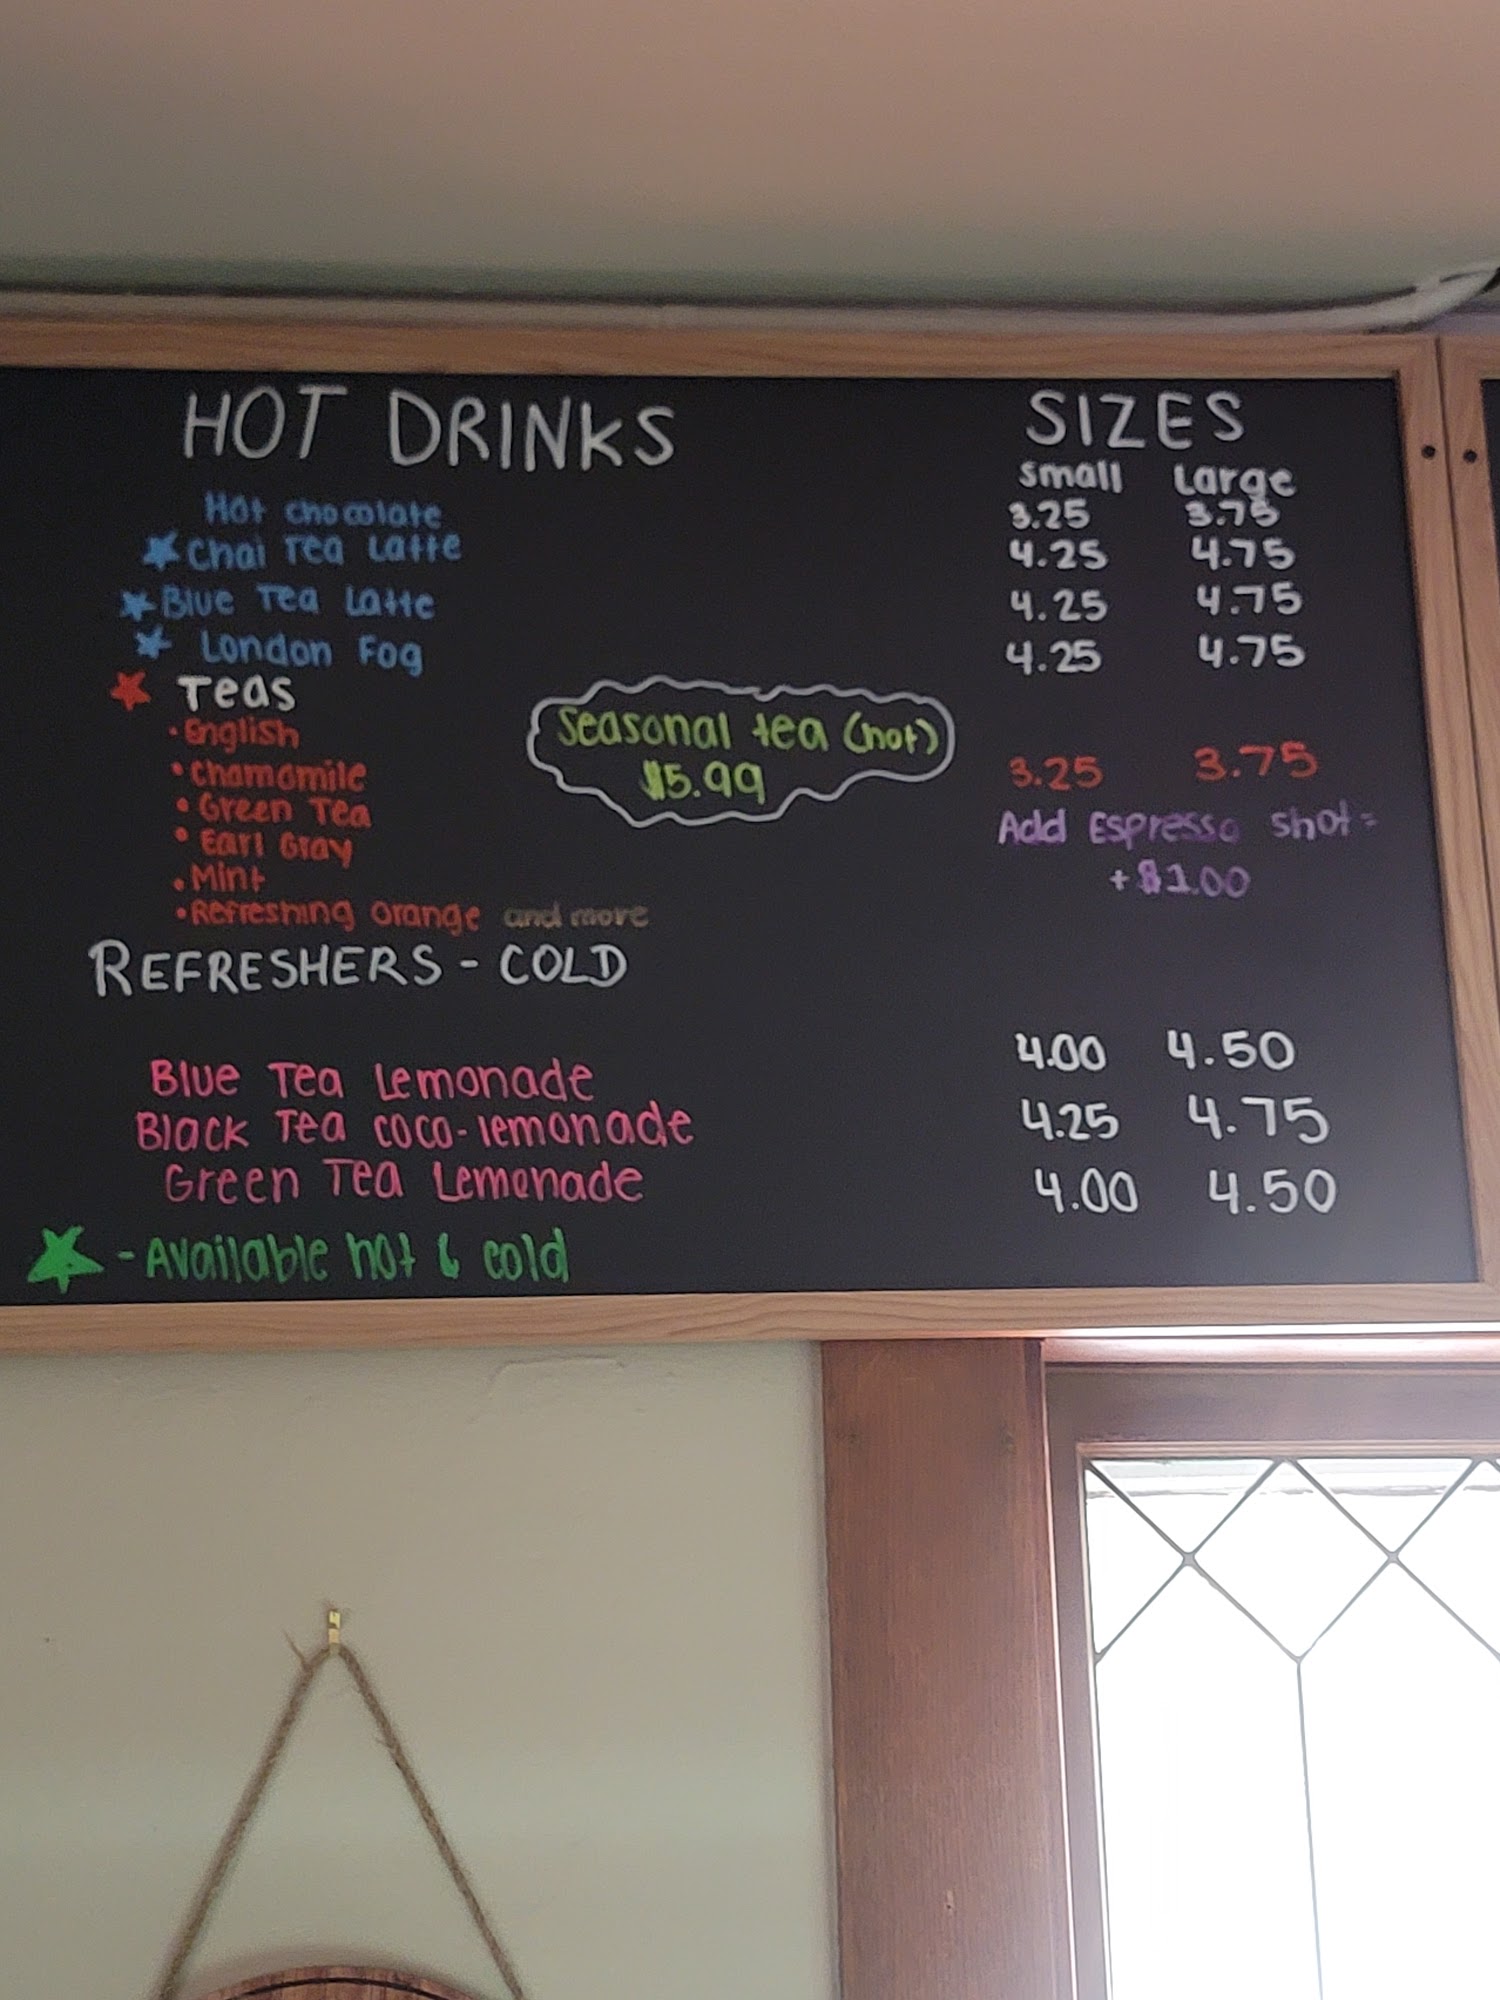 HOT DRINKS
SIZES
small Large
Hot chocolate 3.25 3.75
Chai Tea Latte 4.25 4.75
Blue Tea Latte 4.25 4.75
London Fog 4.25 4.75
Teas
• English
• Chamomile
• Green Tea
• Earl Gray
• Mint
• Refreshing orange and more
Seasonal tea (hot)
$5.99
3.25 3.75
Add Espresso shot =
+ $1.00
REFRESHERS - COLD
Blue Tea Lemonade 4.00 4.50
Black Tea coco-lemonade 4.25 4.75
Green Tea Lemonade 4.00 4.50
- Available hot & cold